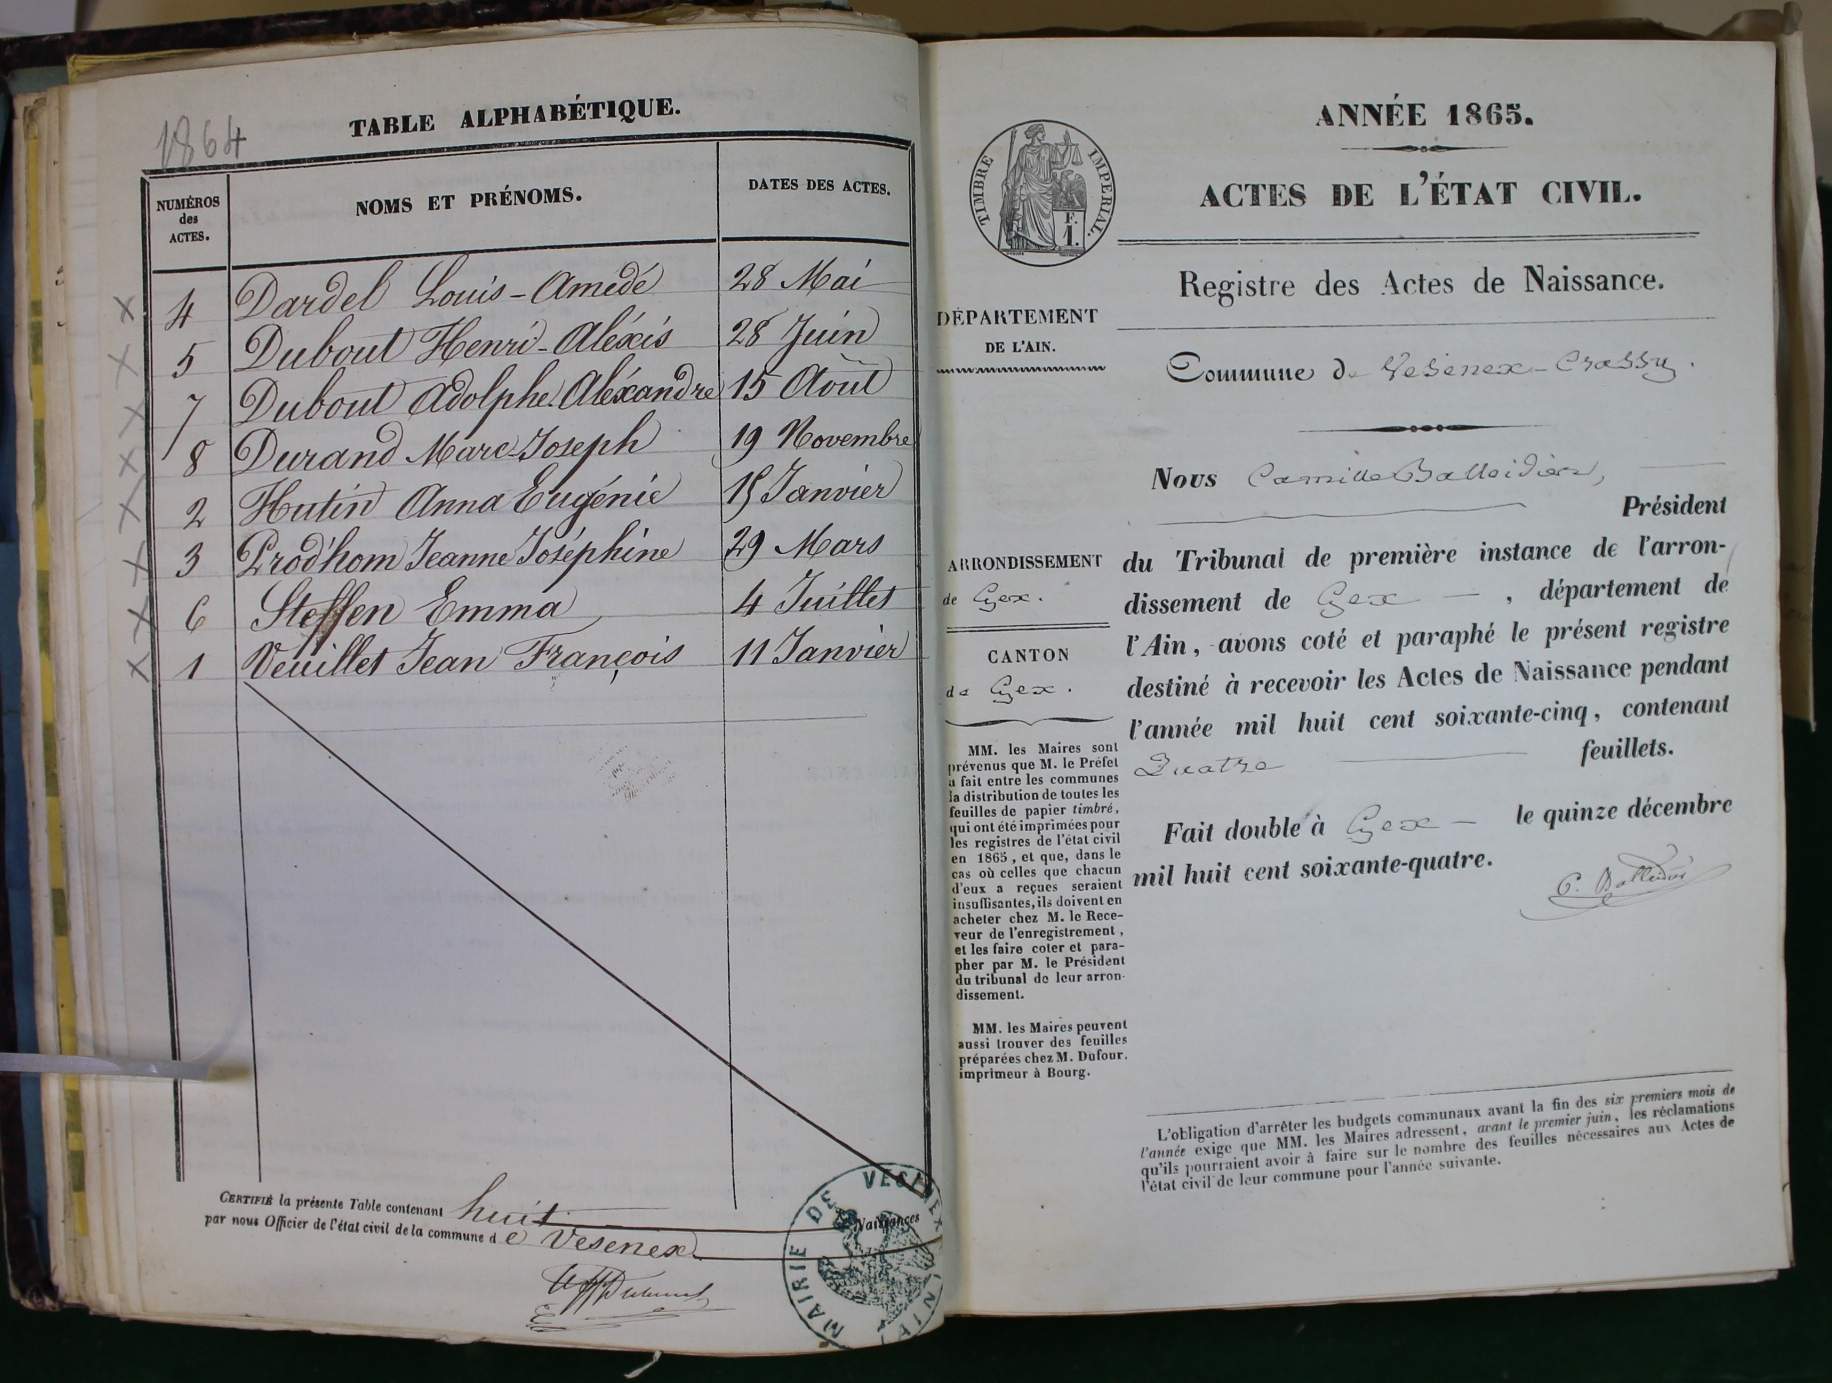 1864
TABLE ALPHABÉTIQUE.
NUMÉROS des ACTES.
NOMS ET PRÉNOMS.
DATES DES ACTES.
4 Dardel Louis-Amédé 28 Mai
5 Dubout Henri-Aléxis 28 Juin
7 Dubout Adolphe Aléxandre 15 Août
8 Durand Marc-Joseph 19 Novembre
2 Hutin Anna Eugénie 15 Janvier
3 Prod'hom Jeanne Joséphine 29 Mars
6 Steffen Emma 4 Juillet
1 Veuillet Jean François 11 Janvier
CERTIFIÉ la présente Table contenant huit Naissances
par nous Officier de l'état civil de la commune de Vesenex
MAIRIE DE VESENEX (AIN)
ANNÉE 1865.
TIMBRE IMPERIAL.
F. 1.
ACTES DE L'ÉTAT CIVIL.
Registre des Actes de Naissance.
DÉPARTEMENT
DE L'AIN.
Commune de Vesenex-Crassy.
Nous Camille Balleidier,
Président
du Tribunal de première instance de l'arron-
dissement de Gex, département de
l'Ain, avons coté et paraphé le présent registre
destiné à recevoir les Actes de Naissance pendant
l'année mil huit cent soixante-cinq, contenant
Quatre feuillets.
Fait double à Gex le quinze décembre
mil huit cent soixante-quatre.
ARRONDISSEMENT
de Gex.
CANTON
de Gex.
MM. les Maires sont
prévenus que M. le Préfet
a fait entre les communes
la distribution de toutes les
feuilles de papier timbré,
qui ont été imprimées pour
les registres de l'état civil
en 1865, et que, dans le
cas où celles que chacun
d'eux a reçues seraient
insuffisantes, ils doivent en
acheter chez M. le Rece-
veur de l'enregistrement,
et les faire coter et para-
pher par M. le Président
du tribunal de leur arron-
dissement.
MM. les Maires peuvent
aussi trouver des feuilles
préparées chez M. Dufour,
imprimeur à Bourg.
L'obligation d'arrêter les budgets communaux avant la fin des six premiers mois de
l'année exige que MM. les Maires adressent, avant le premier juin, les réclamations
qu'ils pourraient avoir à faire sur le nombre des feuilles nécessaires aux Actes de
l'état civil de leur commune pour l'année suivante.